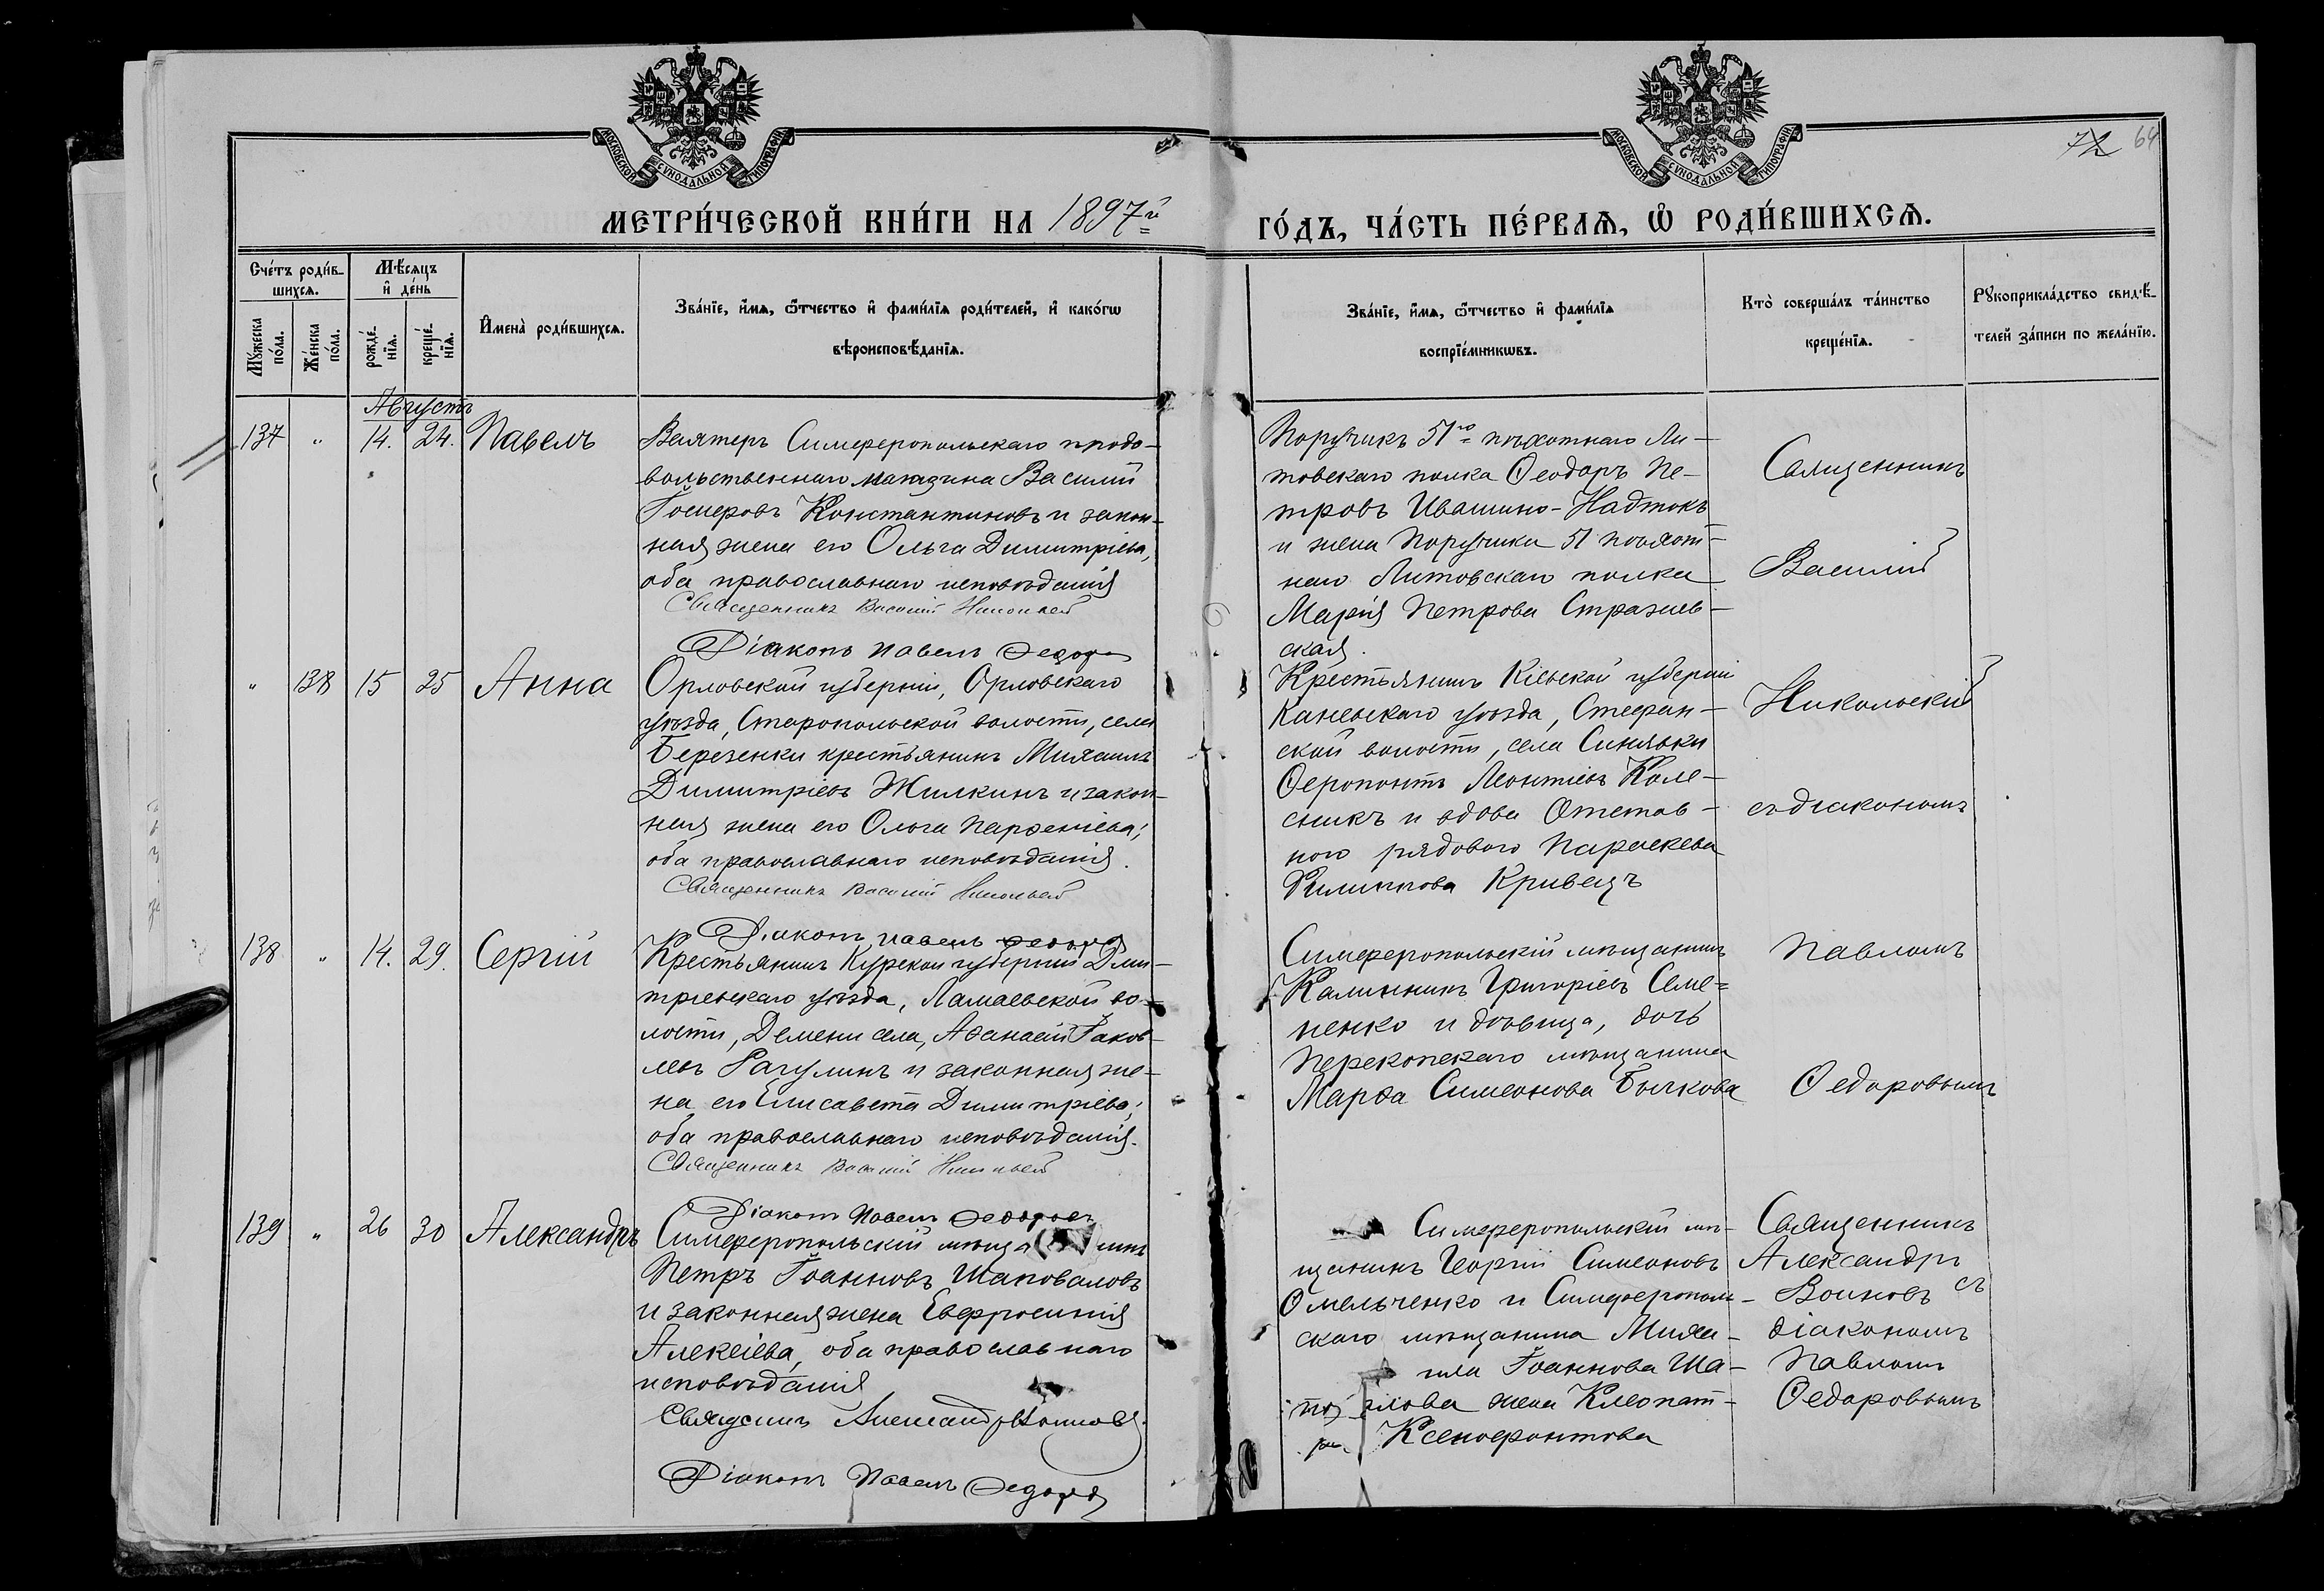 МОСКОВСКОЙ СУНОДАЛЬНОЙ ТИПОГРАФІИ
МОСКОВСКОЙ СУНОДАЛЬНОЙ ТИПОГРАФІИ
72 64
МЕТРИ́ЧЕСКОЙ КНИ́ГИ НА 1897й
ГО́ДЪ, ЧА́СТЬ ПЕ́РВАѦ, Ѽ РОДИ́ВШИХСѦ.
Сче́тъ роди́в-
шихсѧ.
Мꙋ́жеска
по́ла.
Же́нска
по́ла.
Мѣ́сѧцъ
и҆ де́нь
рожде́-
нїѧ.
креще́-
нїѧ.
И҆мена̀ роди́вшихсѧ.
Зва́нїе, и҆́мѧ, ѻ҆́тчество и҆ фами́лїѧ роди́телей, и҆ како́гѡ
вѣроисповѣ́данїѧ.
Зва́нїе, и҆́мѧ, ѻ҆́тчество и҆ фами́лїѧ
воспрїе́мникѡвъ.
Кто̀ соверша́лъ та́инство
креще́нїѧ.
Рꙋкоприкла́дство свидѣ́-
телей за́писи по жела́нїю.
Августъ
137 " 14. 24. Павелъ
Вахтеръ Симферопольскаго продо-
вольственнаго магазина Василій
Константиновъ и закон-
ная жена его Ольга Димитріева,
оба православнаго исповѣданія
Священникъ Василій Никольскій
Діаконъ Павелъ Федоровъ
Поручикъ 51го пѣхотнаго Ли-
товскаго полка Ѳеодоръ Пе-
тровъ Ивашино-Надтокъ
и жена Поручика 51 пѣхот-
наго Литовскаго полка
Марія Петрова Стражев-
ская.
Священникъ
Василій
Никольскій
съ діакономъ
Павломъ
Ѳедоровымъ
" 138 15 25 Анна
Орловской губерніи, Орловскаго
уѣзда, Старопольской волости, села
Березенки крестьянинъ Михаилъ
Димитріевъ Жилкинъ и закон-
ная жена его Ольга Парѳеніева;
оба православнаго исповѣданія.
Священникъ Василій Никольскій
Діаконъ Павелъ Федоровъ
Крестьянинъ Кіевской губерніи
Каневскаго уѣзда, Стефан-
ской волости, села Синявки
Ѳеропонтъ Леонтіевъ Коле-
сникъ и вдова Отстав-
ного рядового Параскева
Филиппова Кривецъ
138 " 14. 29. Сергій
Крестьянинъ Курской губерніи Дми-
тріевскаго уѣзда, во-
лости, Демени села, Аѳанасій Іаков-
левъ Рагулинъ и законная же-
на его Елисавета Димитріева;
оба православнаго исповѣданія.
Священникъ Василій Никольскій
Діаконъ Павелъ Федоровъ
Симферопольскій мѣщанинъ
Калинникъ Григоріевъ Семе=
ненко и дѣвица, дочь
Перекопскаго мѣщанина
Марѳа Симеонова Бычкова
139 " 26 30 Александръ
Симферопольскій мѣща нинъ
Петръ Іоанновъ Шаповаловъ
и законная жена Евфросинія
Алексіева, оба православнаго
исповѣданія
Священникъ Александръ Воиновъ.
Діаконъ Павелъ Федоровъ
Симферопольскій мѣ-
щанинъ Георгій Симеоновъ
Омельченко и Симферополь-
скаго мѣщанина Миха-
ила Іоаннова Ша-
по лова жена Клеопат-
ра Ксенофонтова
Священникъ
Александръ
Воиновъ съ
діакономъ
Павломъ
Ѳедоровымъ